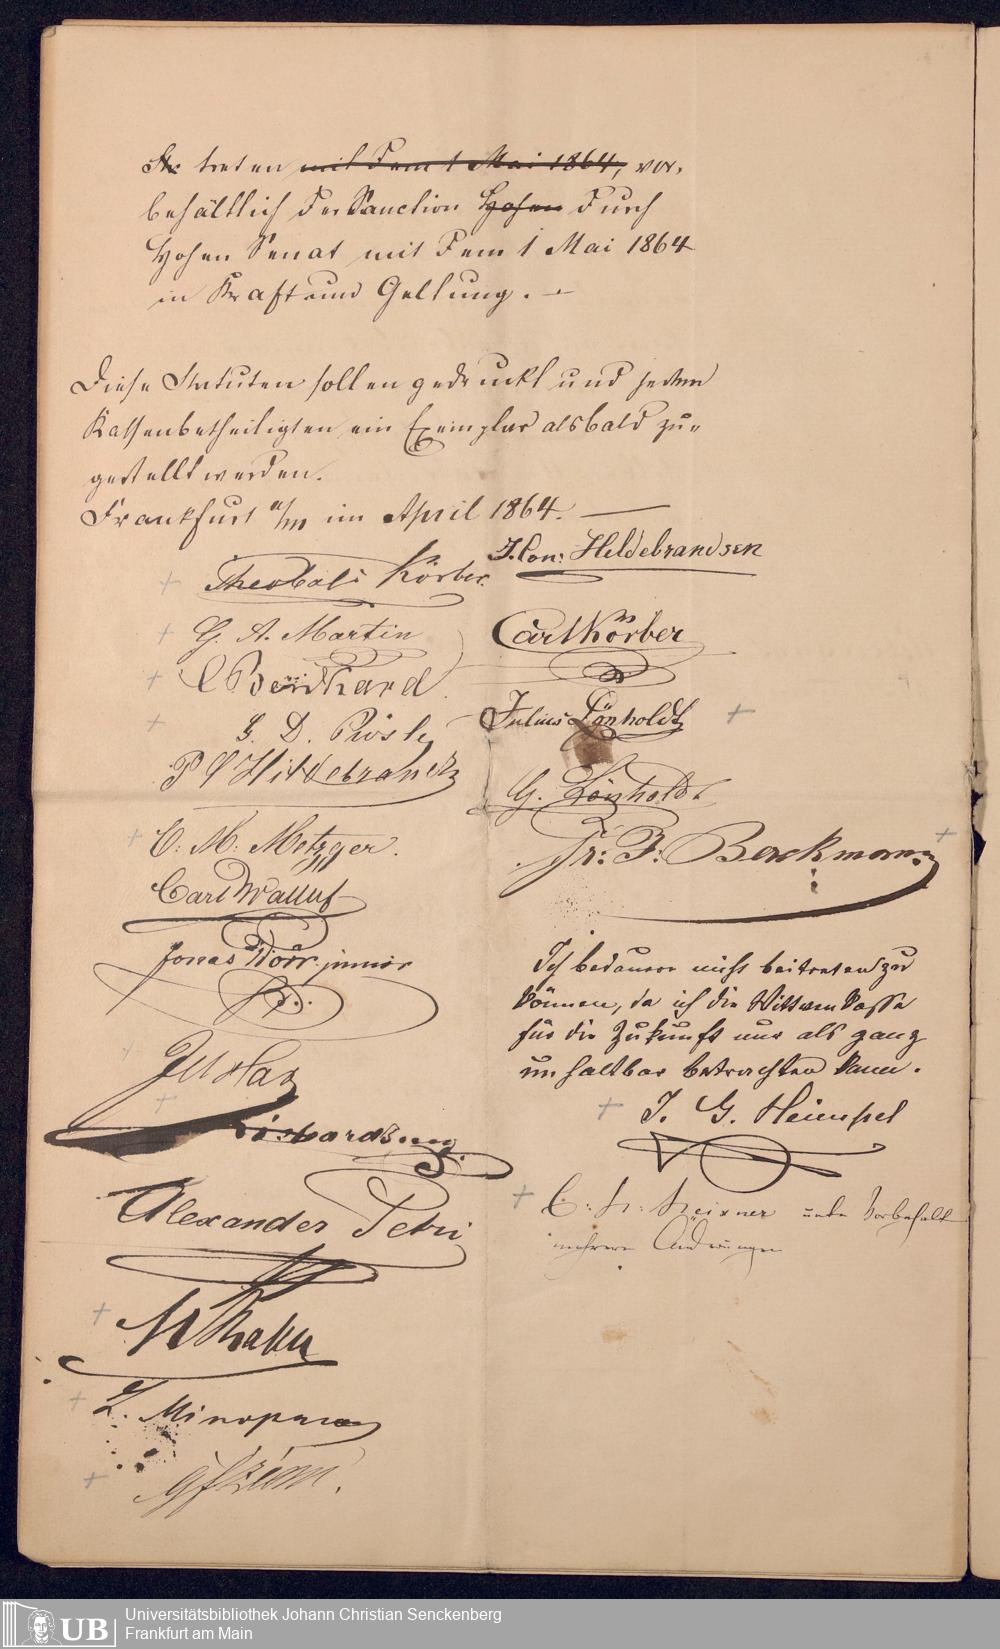 Sie treten mit dem 1 Mai 1864, vor-
behältlich der Sanction Hohen durch
Hohen Senat mit dem 1 Mai 1864
in Kraft und Geltung. —
Diese Statuten sollen gedruckt und jedem
Kassenbetheiligten ein Exemplar alsbald zu-
gestellt werden.
Frankfurt a/m im April 1864. —
Theobald Körber
G. A. Martin
C Bernhard
G. D. Rösle
P C Hildebrandt
C: M: Metzger.
Carl Walluf
Jonas Dörr junior
Alexander Petri
L. Minoprio
J. Con: Hildebrandsen
Carl Körber
Julius Lönholdt
G. Lönholdt
Fr: F: Berckmann
Ich bedauere nicht beitreten zu
können, da ich die Wittwen Kasse
für die Zukunft nur als ganz
unhaltbar betrachten kann.
J. G. Heimpel
C: H: Meixner unter Vorbehalt
mehrerer Änderungen
UB
Universitätsbibliothek Johann Christian Senckenberg
Frankfurt am Main